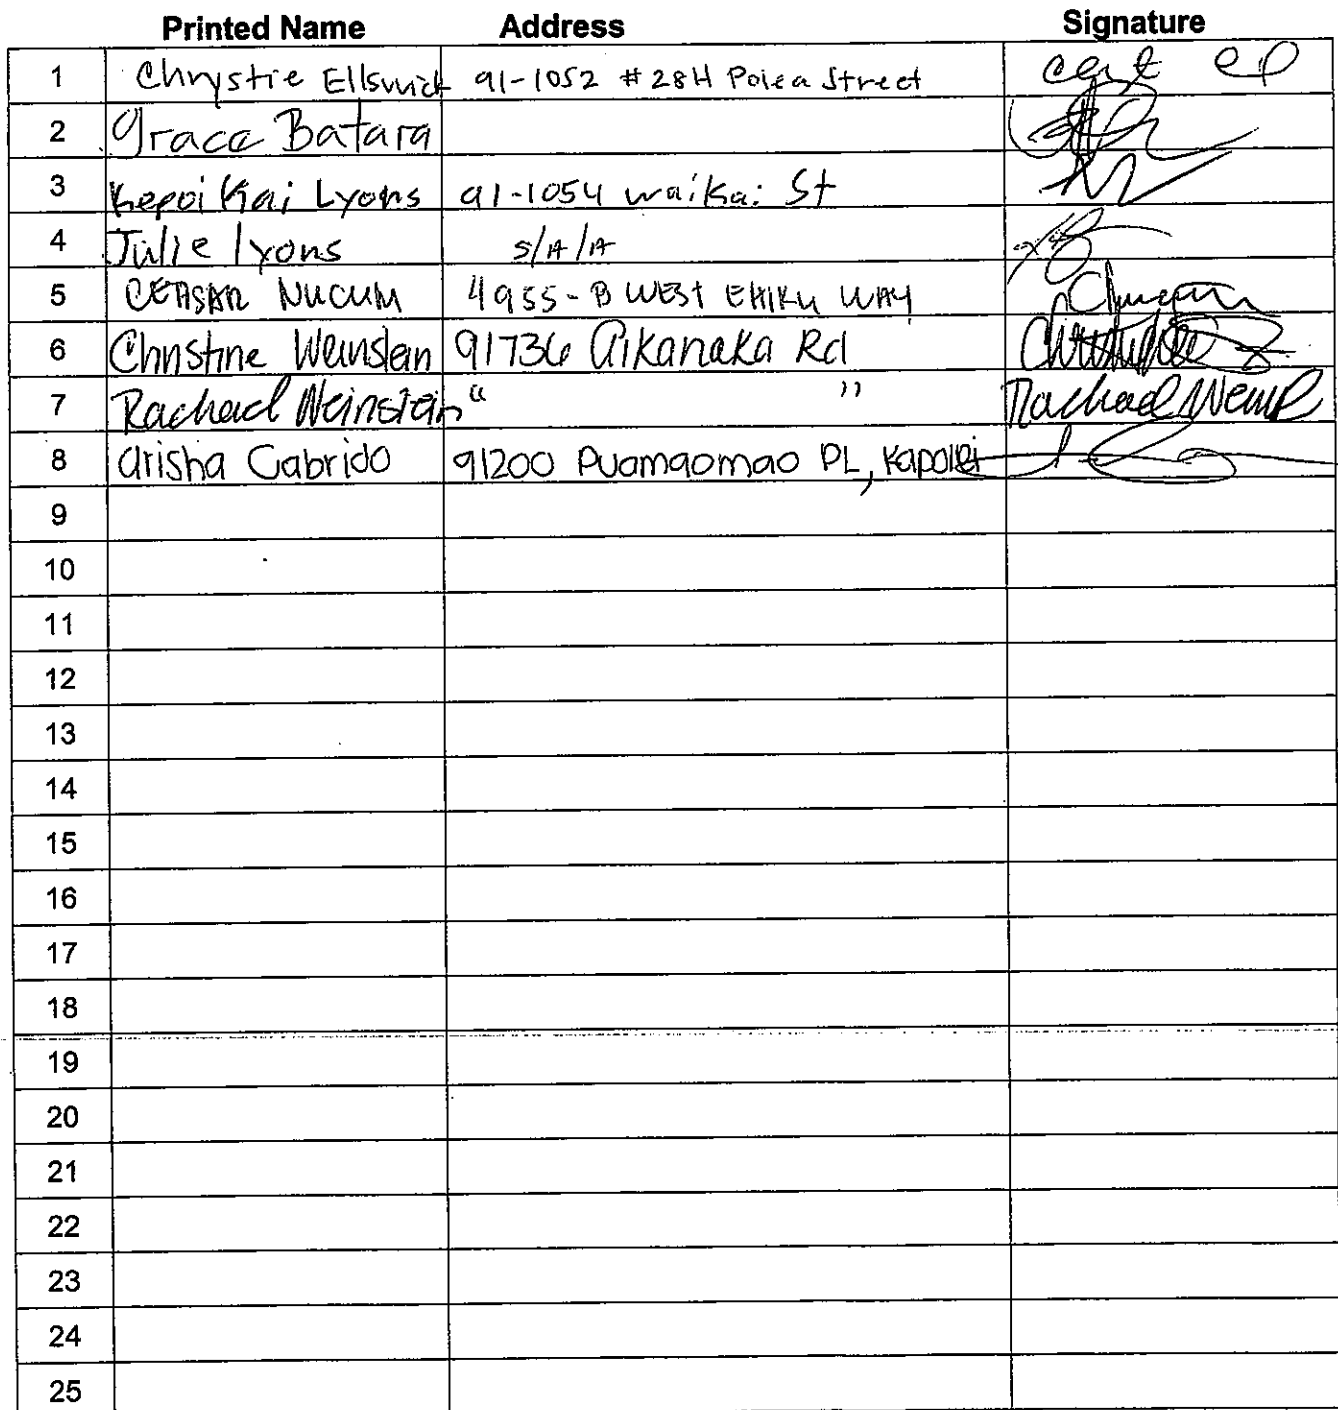 Printed Name Address Signature
1 Chrystie Ellswick 91-1052 #28H Polea Street
2 Grace Batara
3 Kepoi Kai Lyons 91-1054 Waikai St
4 Julie Lyons S/A/A
5 CEASAR NUCUM 4955-B WEST EHIKU WAY
6 Christine Weinstein 91736 Aikanaka Rd
7 Rachael Weinstein " "
8 Arisha Gabrido 91200 Puamaomao PL, Kapolei
9
10
11
12
13
14
15
16
17
18
19
20
21
22
23
24
25